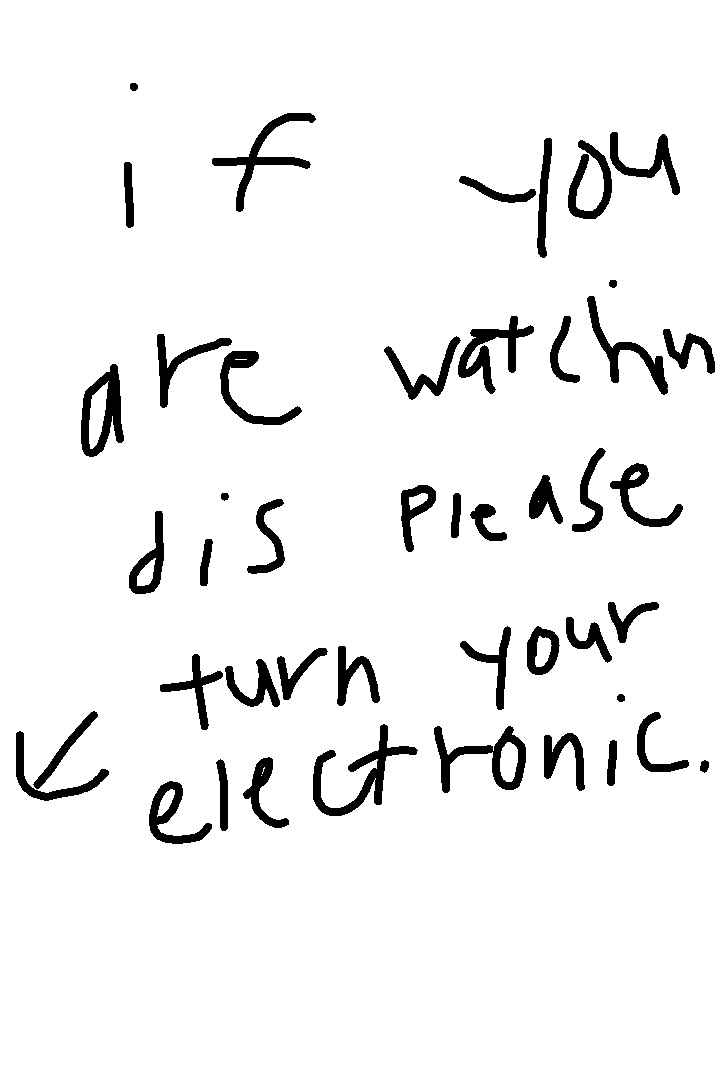 if you
are watchin
dis please
turn your
electronic.